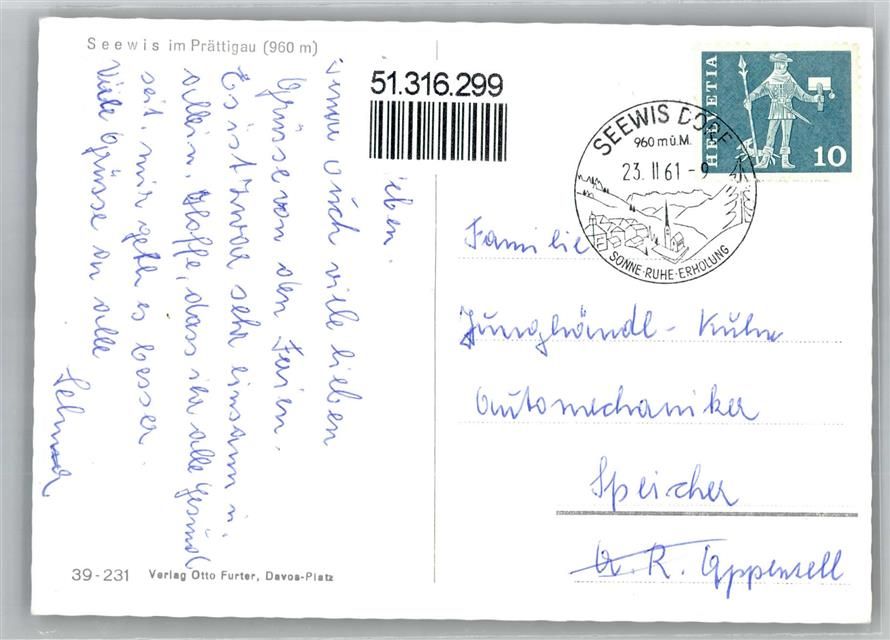 Seewis im Prättigau (960 m)
51.316.299
HELVETIA
10
SEEWIS DORF
960 m ü. M.
23. II 61 - 9
SONNE·RUHE·ERHOLUNG
eben.
euch viele lieben
Grüsse von den Faien.
Es ist zwar sehr einsam u.
allein. Hoffe, dass ihr alle gesund
seit. mir geth es besser
Viele Grüsse an alle
Familie
Junghändl - Kuhn
Automechaniker
Speicher
A. R. Appenzell
39-231 Verlag Otto Furter, Davos-Platz